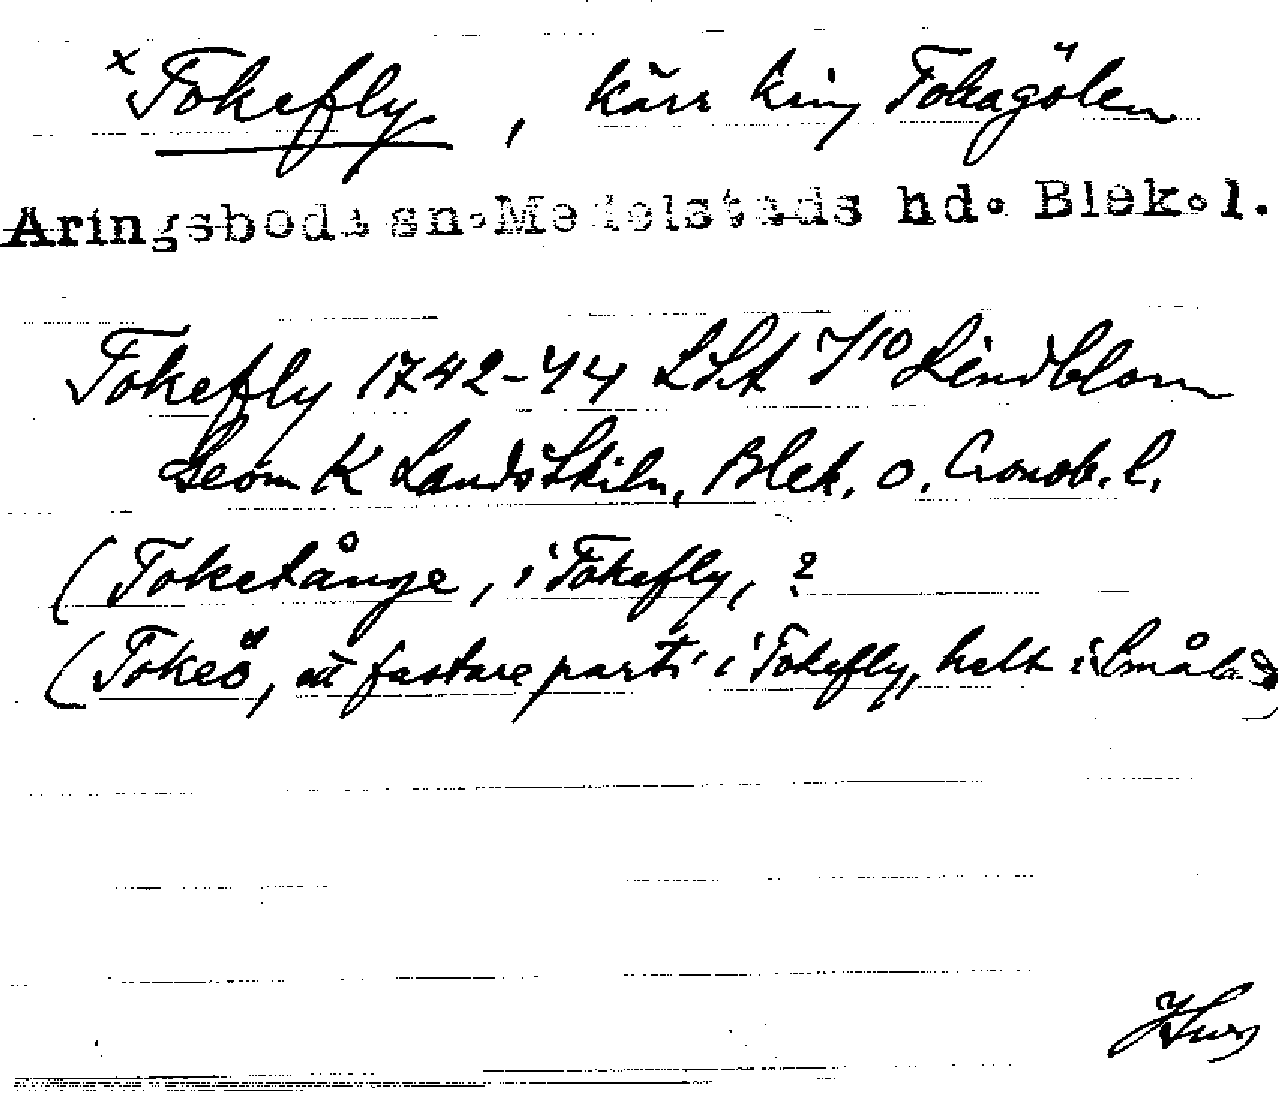 x Tokefly, kärr kring Tokagölen
Aringsboda sn. Medelstads hd. Blek.l.
Tokefly 1742-44 LSA Lindblom
Geom K Landsskiln. Blek. o. Cronob. l.
(Toketånge, i Tokefly, ?
(Tokeö, ett fastare parti i Tokefly, helt i Småland)